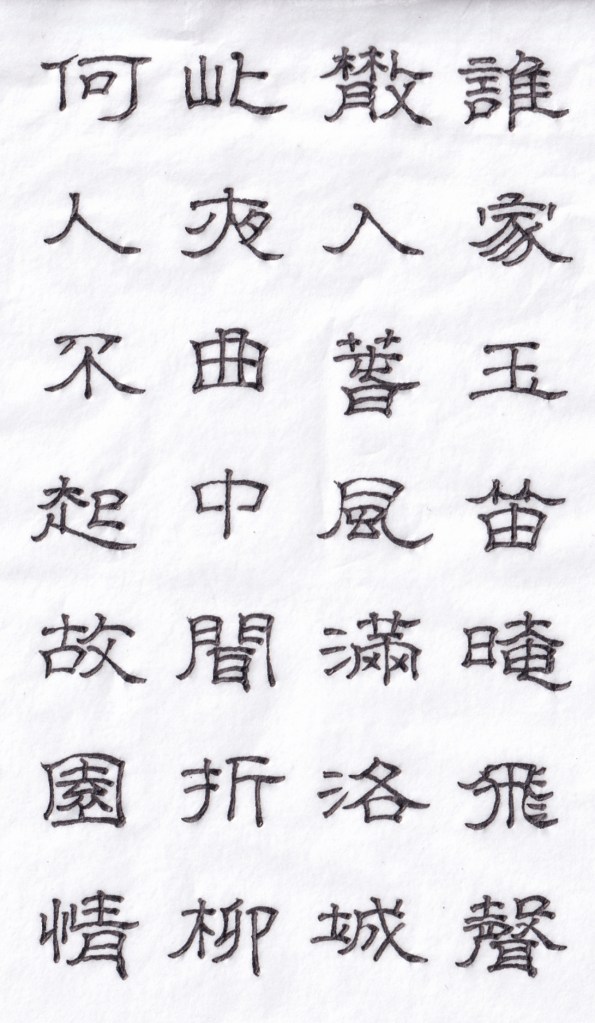 誰家玉笛晻飛聲
散入萅風滿洛城
此夜曲中聞折柳
何人不起故園情